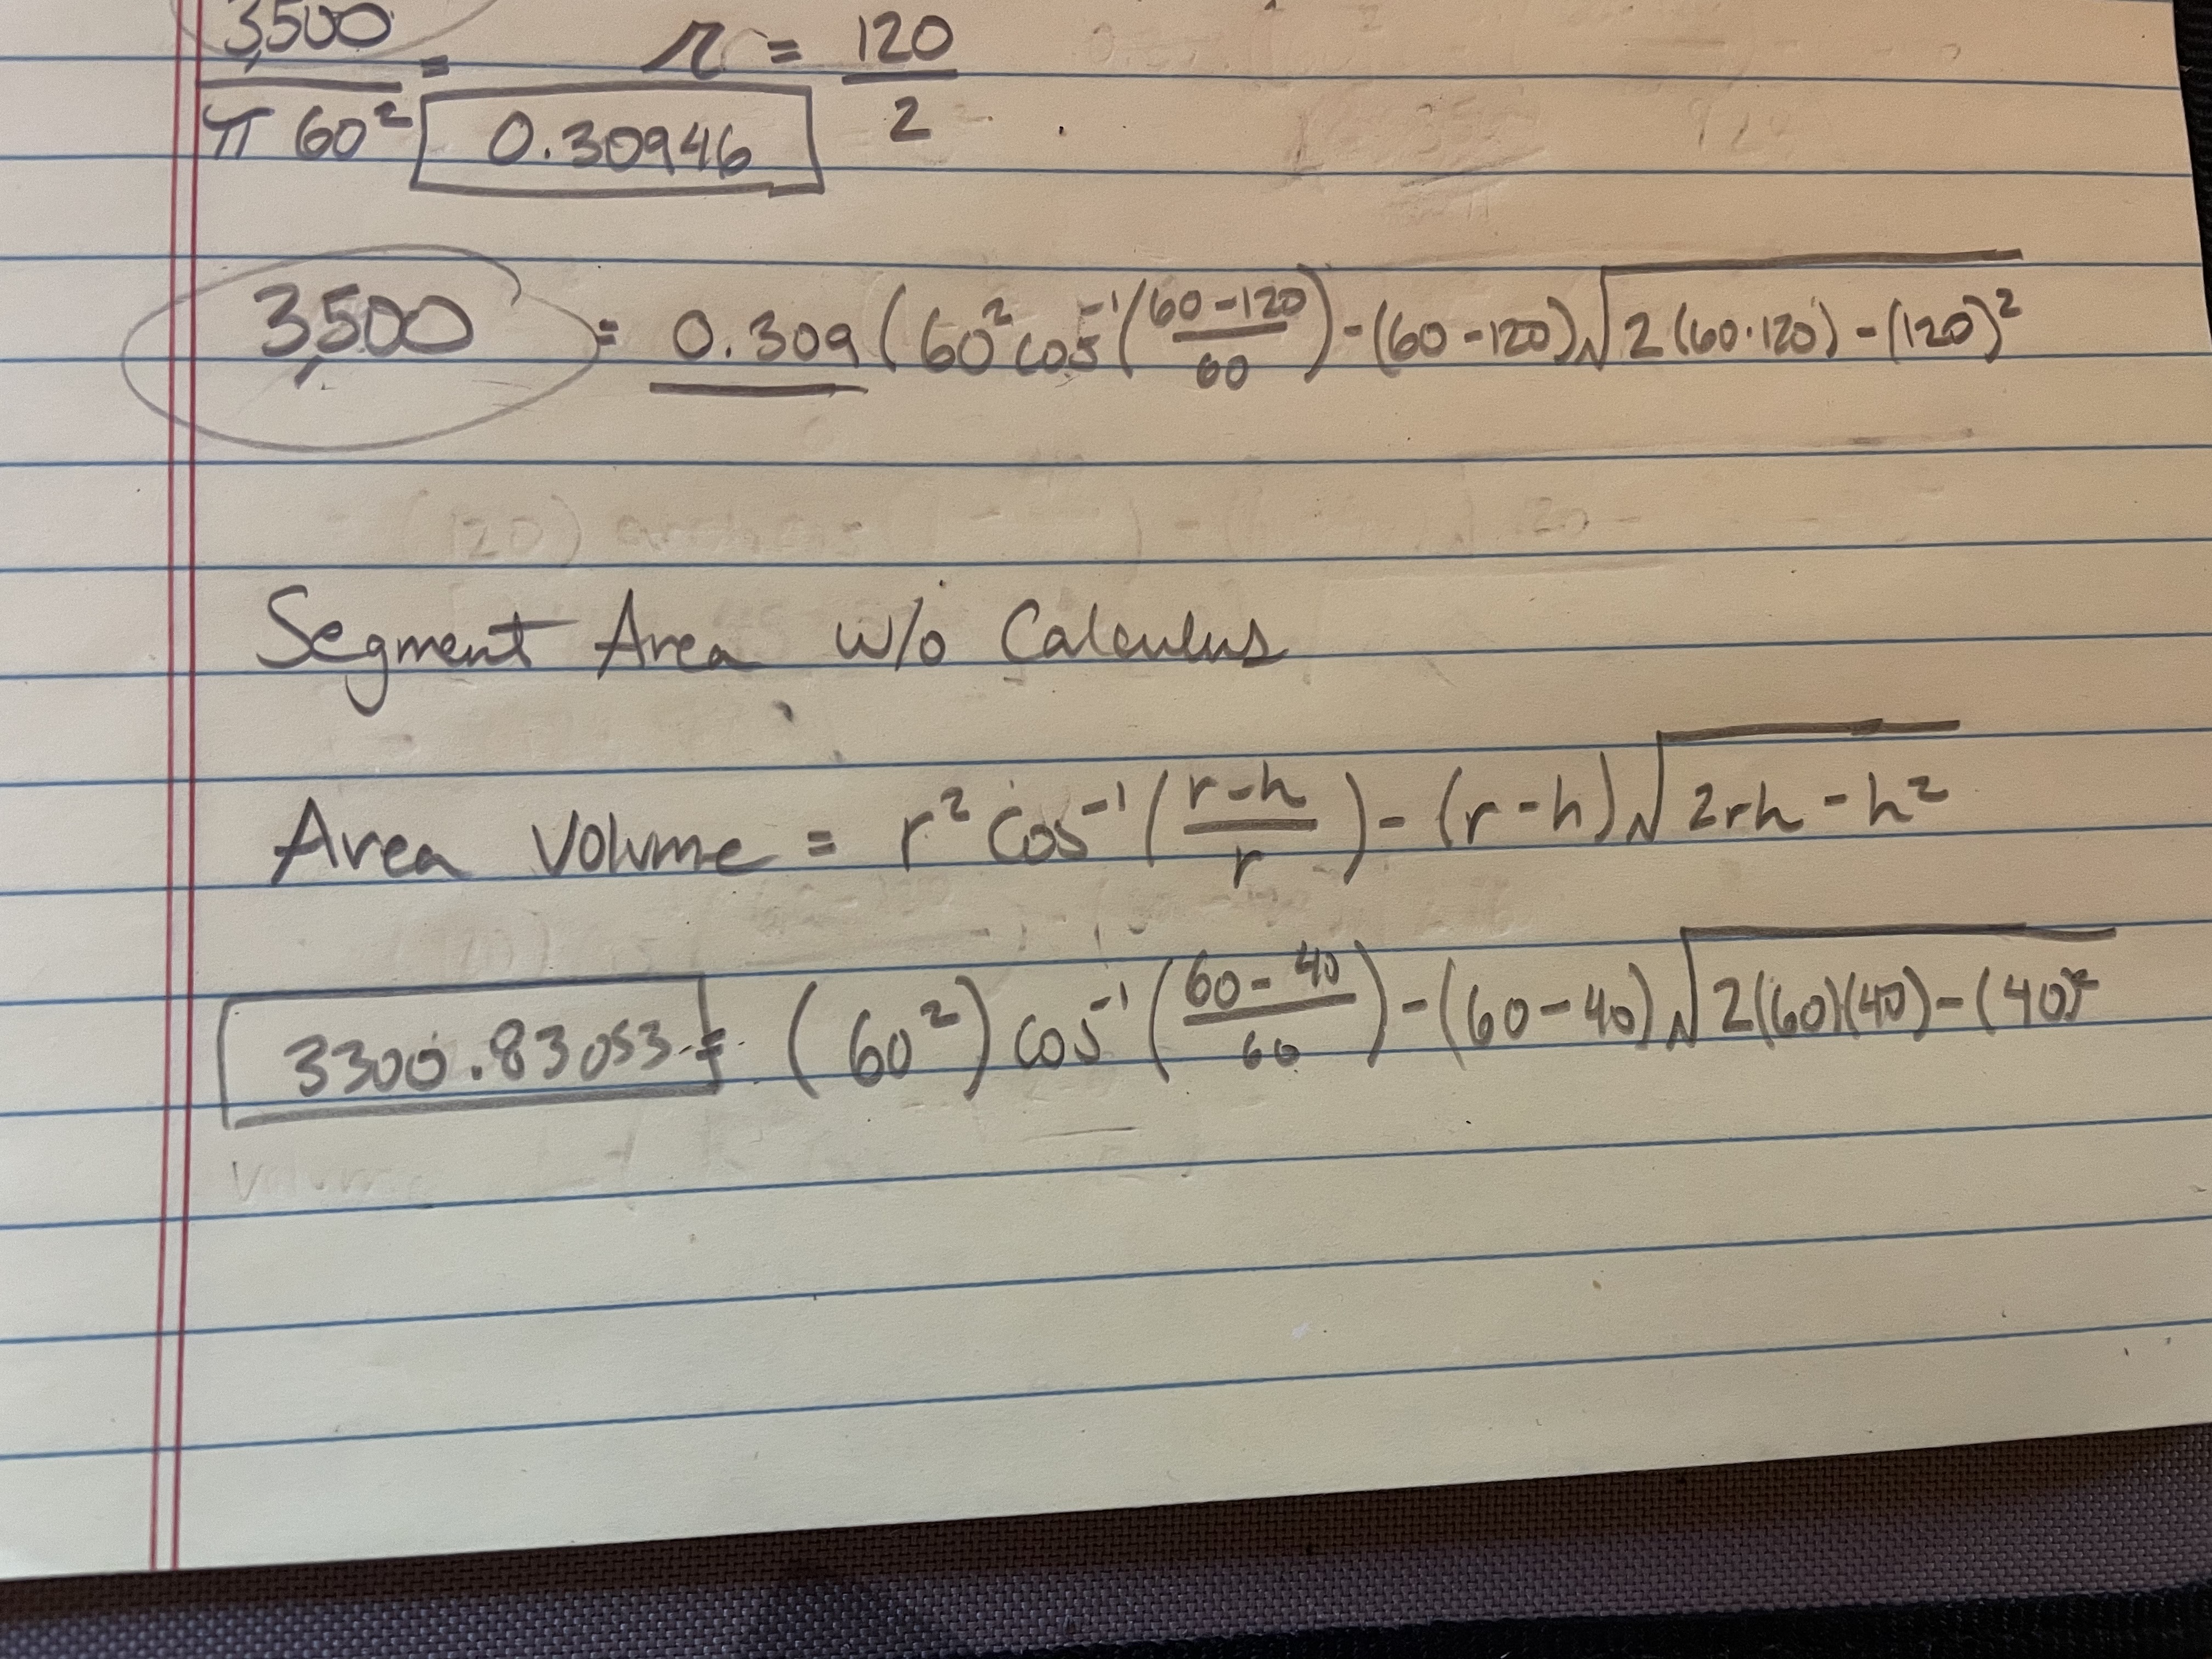 3,500 / π 60² = 0.30946 r = 120 / 2
3,500 = 0.309 (60² cos⁻¹ ((60 - 120) / 60) - (60 - 120) √(2(60·120) - (120)²)
Segment Area w/o Calculus
Area Volume = r² cos⁻¹ ((r - h) / r) - (r - h) √(2rh - h²)
3300.83053 = (60²) cos⁻¹ ((60 - 40) / 60) - (60 - 40) √(2(60)(40) - (40)²)